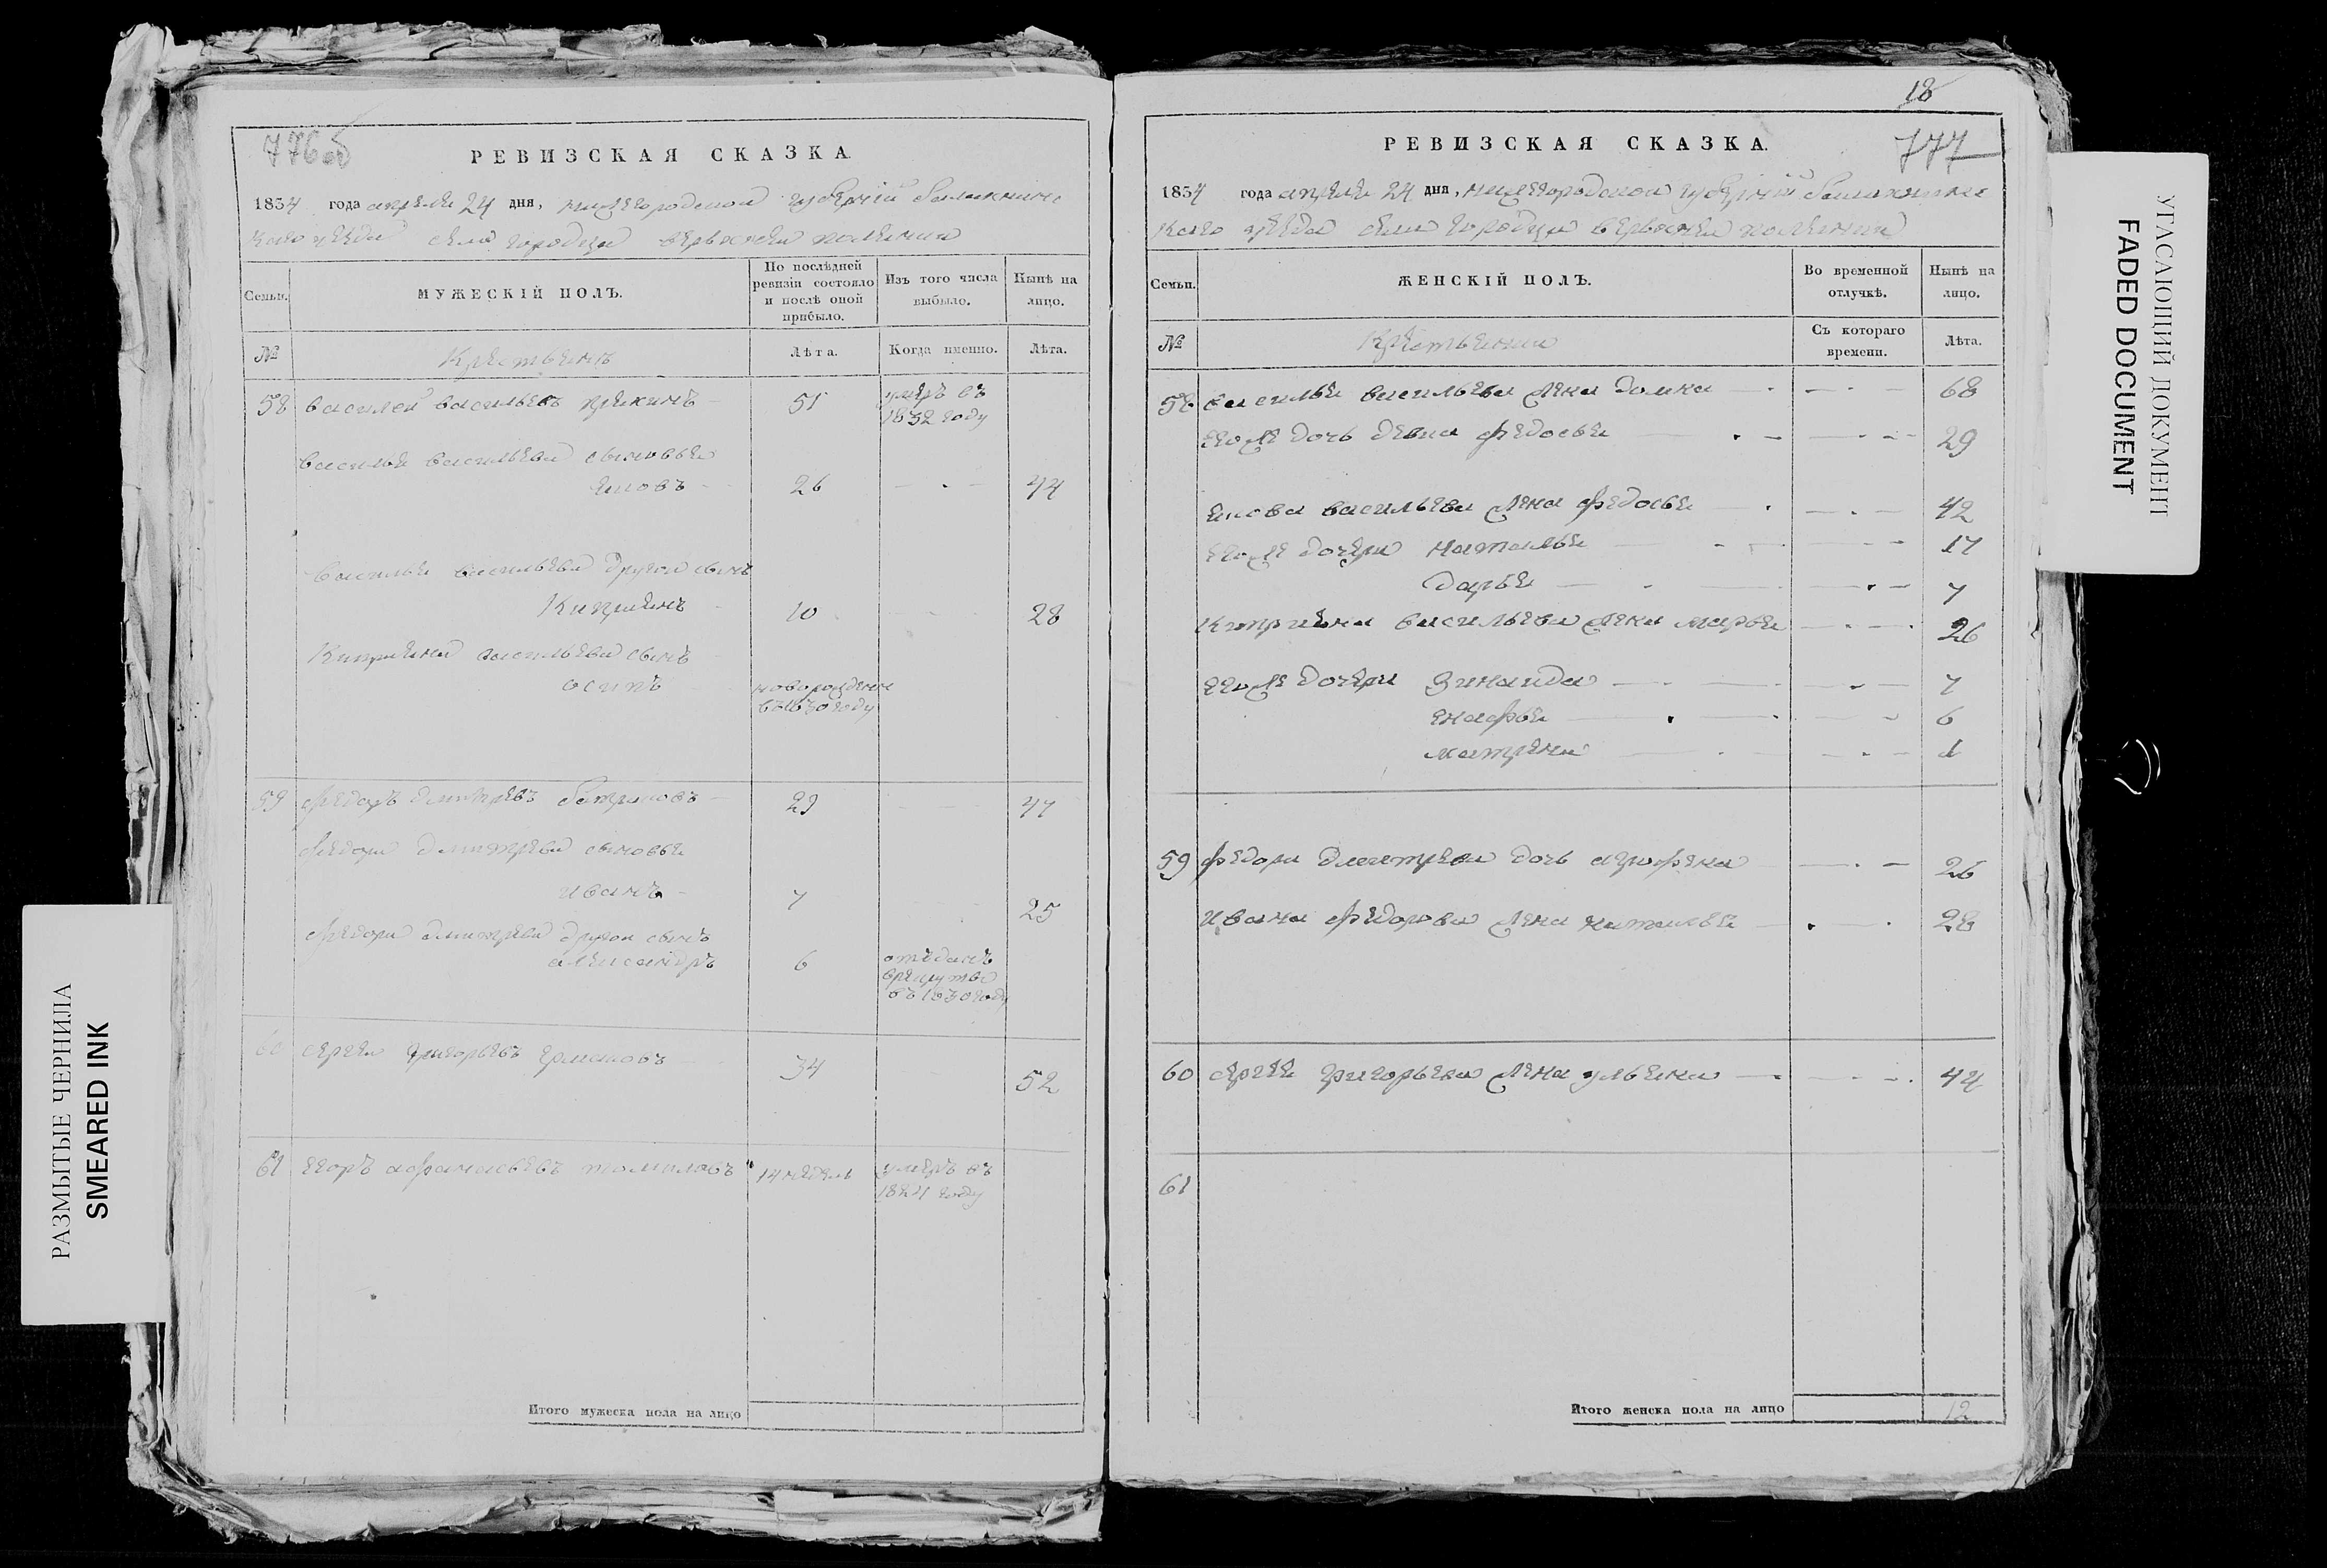 776об
РЕВИЗСКАЯ СКАЗКА.
1834 года апреля 24 дня, нижегородской губернiи балахнинс
каго уезда села городца верхосней полянки
Семьи.
МУЖЕСКIЙ ПОЛЪ.
По послѣдней ревизiи состояло и послѣ оной прибыло.
Изъ того числа выбыло.
Нынѣ на лицо.
№
Крестьянъ
Лѣта.
Когда именно.
Лѣта.
58 василей васильевъ 51 умеръ въ
1832 году
василья васильева сыновья
яковъ 26 44
василья васильева другой сынъ
Киприянъ 10 28
Киприяна васильева сынъ
осипъ новорожденъ
въ 1830 году
59 федоръ дмитревъ 29 47
федора дмитрева сыновья
иванъ 7 25
федора дмитрева другой сынъ
александръ 6 отъданъ
врекруты
въ 1830 году
60 сергей григорьевъ 34 52
61 егоръ афанасьевъ томиловъ 14 недель умеръ въ
1821 году
Итого мужеска пола на лицо
18
777
РЕВИЗСКАЯ СКАЗКА.
1834 года апреля 24 дня, нижегородской губернiи балахнинс
каго уезда села городца верхосней полянки
Семьи.
ЖЕНСКIЙ ПОЛЪ.
Во временной отлучкѣ.
Нынѣ на лицо.
№
Крестьянки
Съ котораго времени.
Лѣта.
58 василья васильева жена домна 68
его же дочь девка федосья 29
якова васильева жена федосья 42
его же дочери наталья 17
дарья 7
Киприяна васильева жена марья 26
его же дочери зинаида 7
енафья 6
матрена 1
59 федора дмитрева дочь аграфена 26
ивана федорова жена наталья 28
60 сергея григорьева жена ульяна 44
61
Итого женска пола на лицо 12
РАЗМЫТЫЕ ЧЕРНИЛА
SMEARED INK
УГАСАЮЩИЙ ДОКУМЕНТ
FADED DOCUMENT